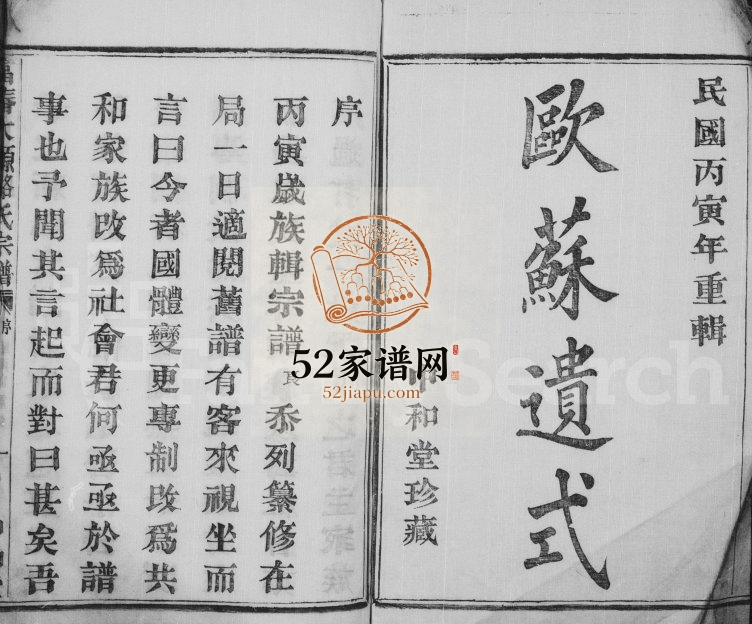 民國丙寅年重輯
歐蘇遺式
和堂珍藏
序
丙寅歲族輯宗譜 忝列纂修在
局一日適閱舊譜有客來視坐而
言曰今者國體變更專制改為共
和家族改為社會君何亟亟於譜
事也予聞其言起而對曰甚矣吾
源駱氏宗譜
序
52家谱网
52jiapu.com
Search